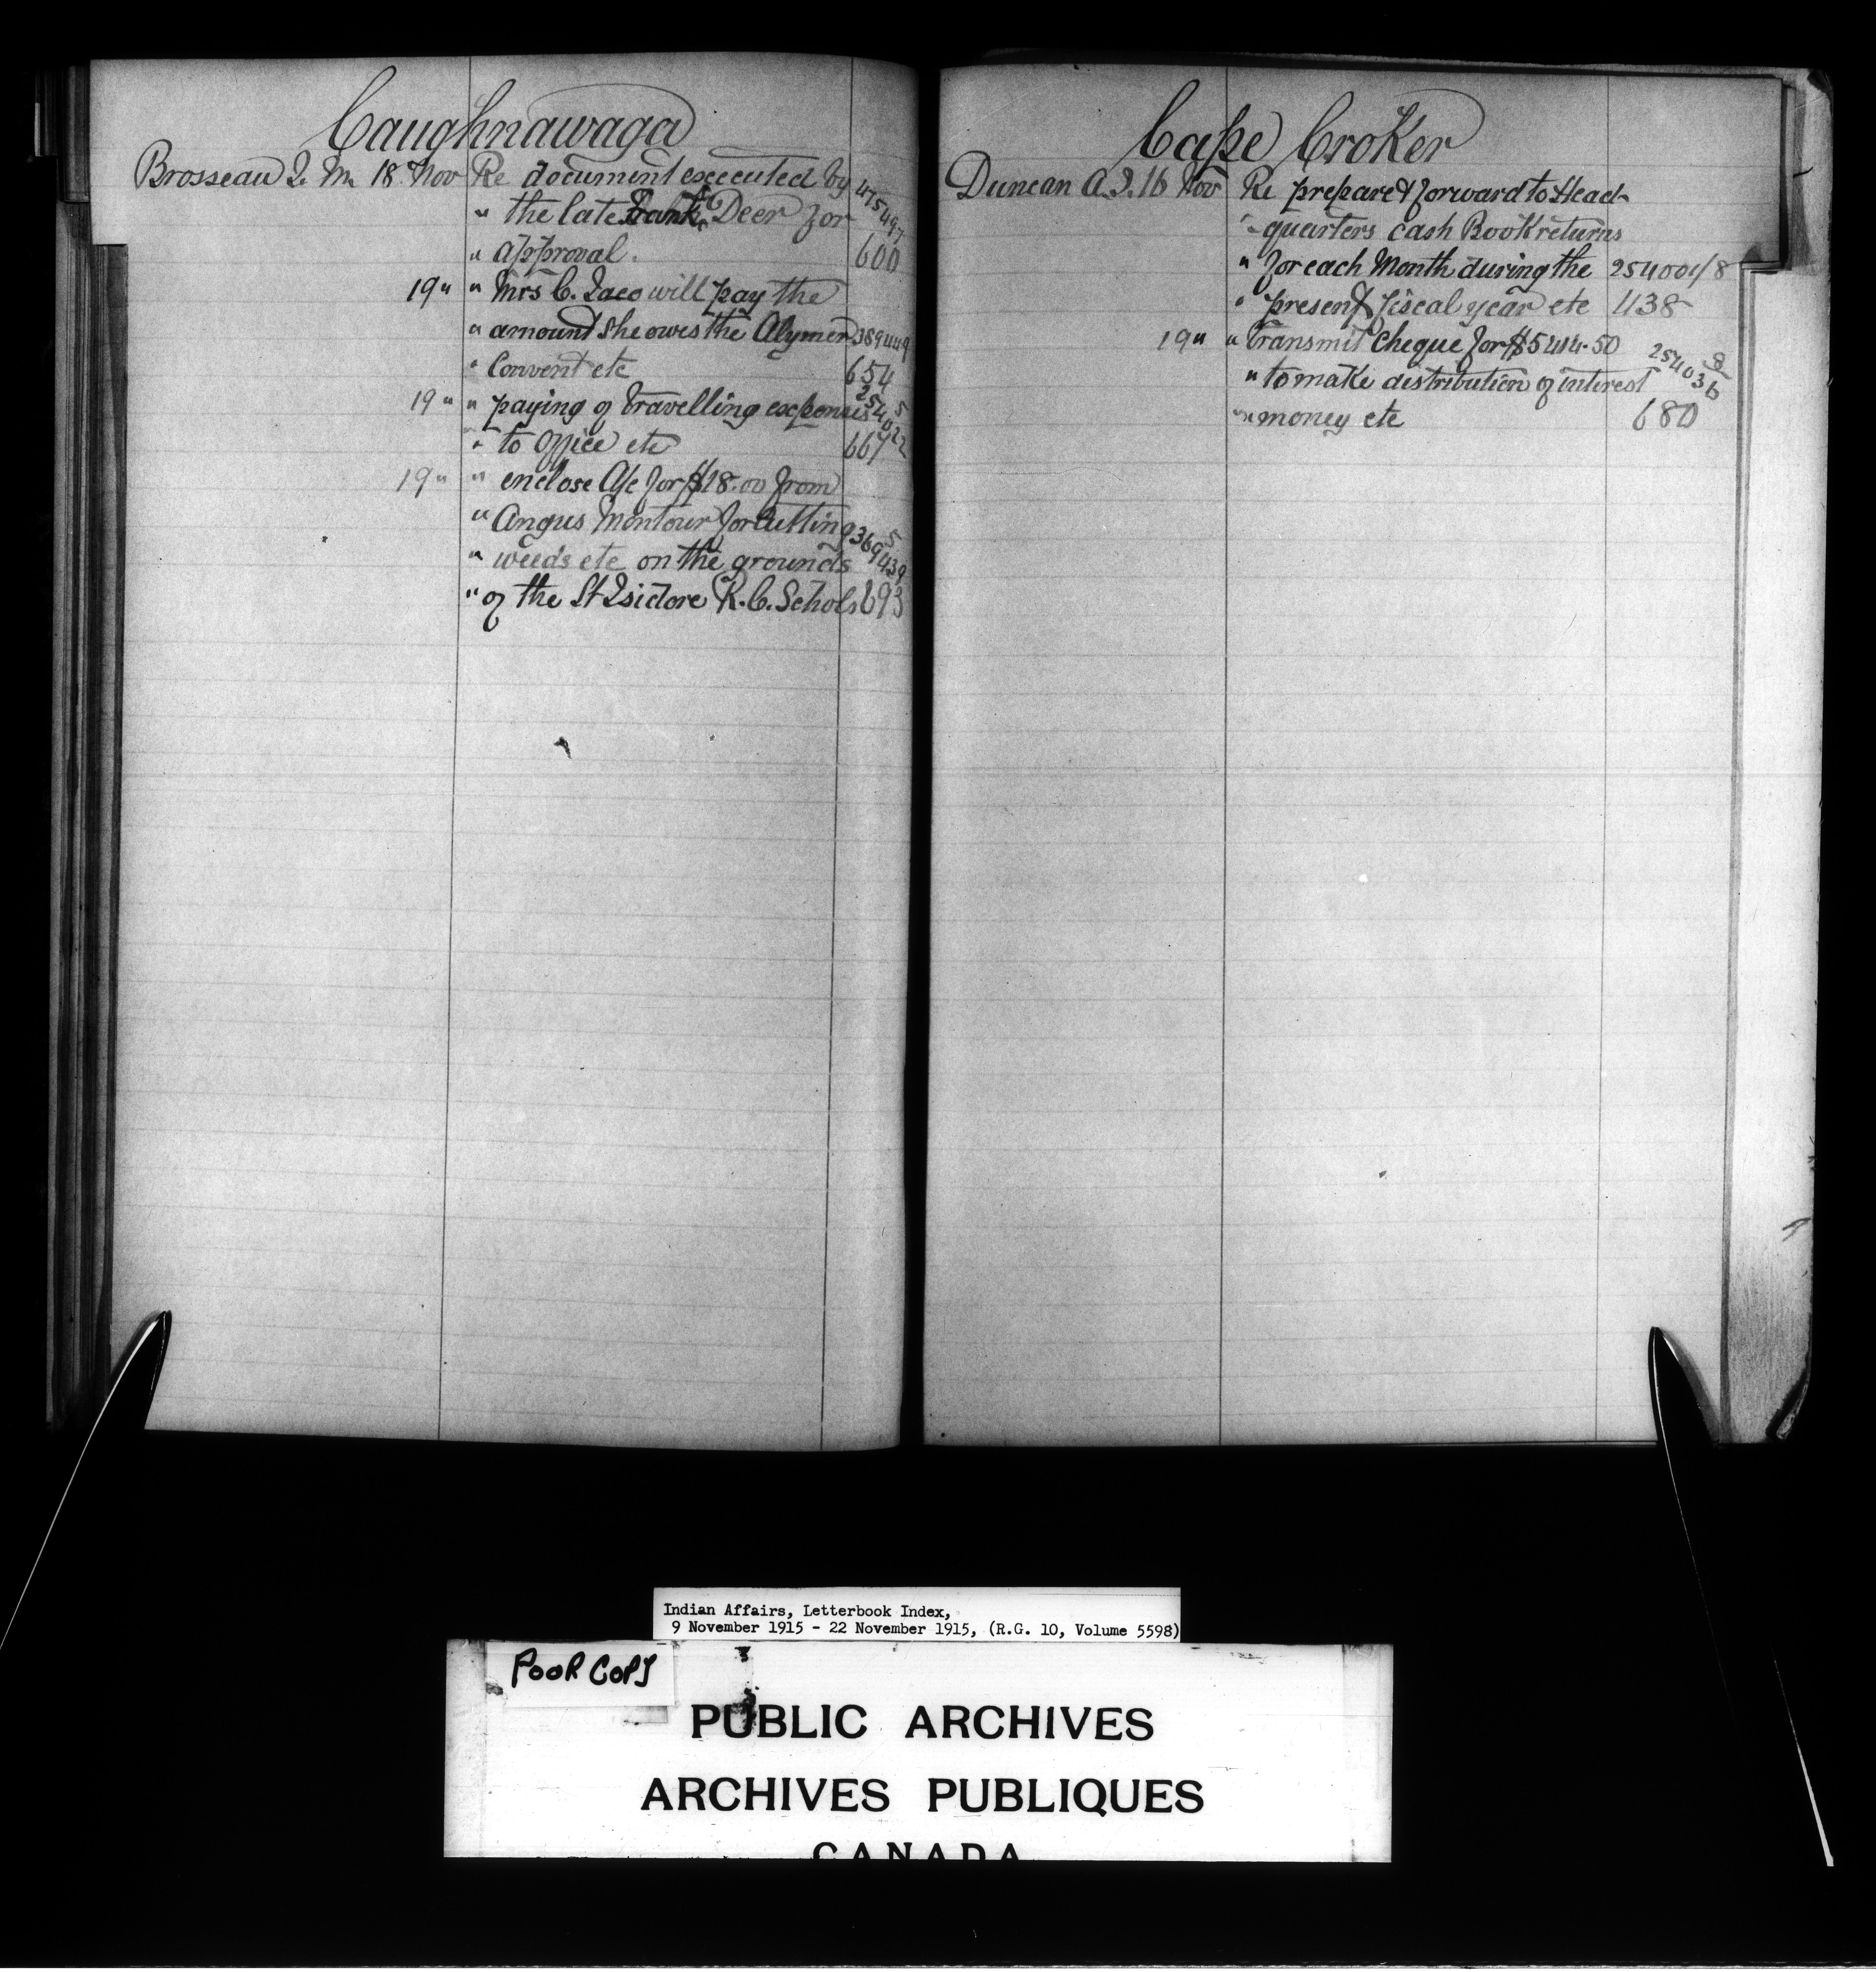 Caughnawaga
Brosseau J. M. 18 Nov Re document executed by 475497
" the late Frank Deer for
" approval. 600
19 " " Mrs C. Jaco will pay the
" amount she owes the Alymer 389449
" Convent etc 654
19 " " paying of travelling expenses 254022/5
" to office etc 667
19 " " enclose A/c for $18.00 from
" Angus Montour for Cutting 369439/5
" weeds etc on the grounds
" of the St Isidore R.C. Schols 693
Cape Croker
Duncan A. J. 16 Nov Re prepare & forward to Head-
" quarters Cash Book returns
" for each Month during the 254001/8
" present fiscal year etc 438
19 " " Transmit Cheque for $5414.50
" to make distribution of interest 254036/8
" money etc 680
Indian Affairs, Letterbook Index,
9 November 1915 - 22 November 1915, (R.G. 10, Volume 5598)
POOR COPY
PUBLIC ARCHIVES
ARCHIVES PUBLIQUES
CANADA